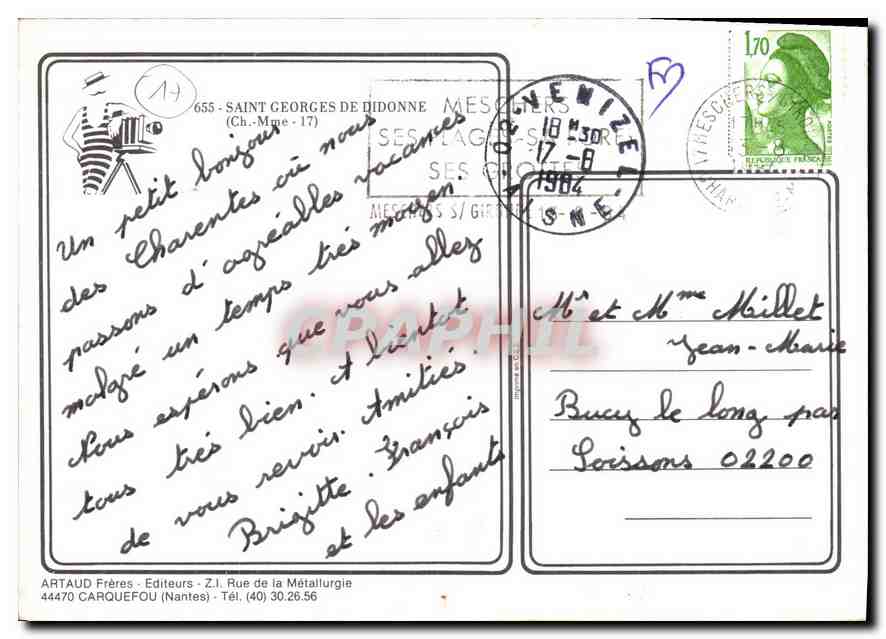 17
655 - SAINT GEORGES DE DIDONNE
(Ch.-Mme - 17)
Un petit bonjour
des Charentes où nous
passons d'agréables vacances
malgré un temps très moyen.
Nous espérons que vous allez
tous très bien. A bientot
de vous revoir. Amitiés.
Brigitte. François
et les enfants
MESCHERS
SES PLAGES
SES GROTTES
MESCHERS S/ GIRONDE
02 - VENIZEL
18H30
17 -8
1984
AISNE
17 MESCHERS
1,70
REPUBLIQUE FRANÇAISE
POSTES
Mr et Mme Millet
Jean-Marie
Bucy le long par
Soissons 02200
Imprimé en C.E.E.
CPAPHIL
ARTAUD Frères - Editeurs - Z.I. Rue de la Métallurgie
44470 CARQUEFOU (Nantes) - Tél. (40) 30.26.56